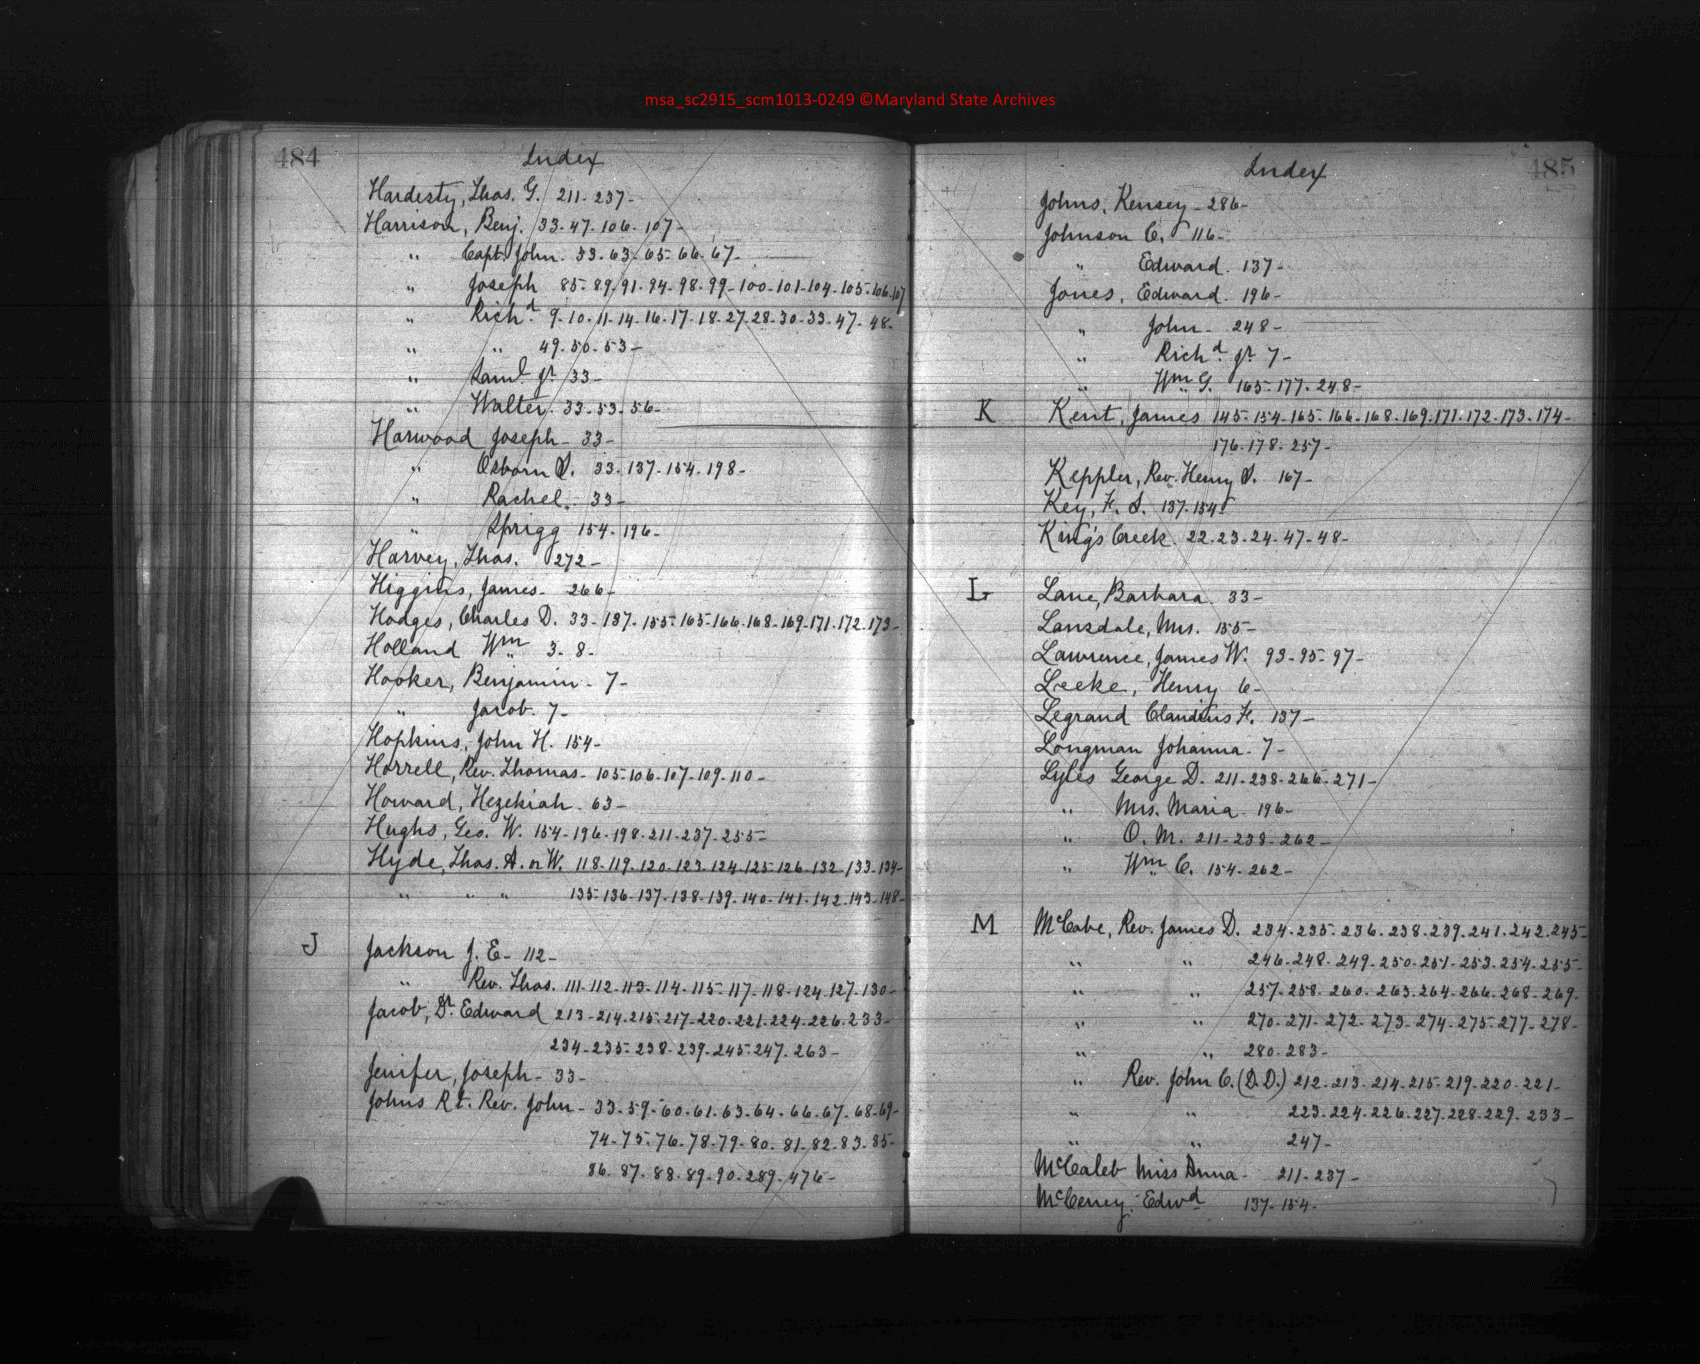 msa_sc2915_scm1013-0249 ©Maryland State Archives
484
Index
Hardesty, Thos. G. 211-237-
Harrison, Benj. 33-47-106-107-
" Capt. John. 33-63-65-66-67-
" Joseph 85-89-91-94-98-99-100-101-104-105-106-107
" Richd 9-10-11-14-16-17-18-27-28-30-33-47-48-
" " 49-50-53-
" Saml. Jr 33-
" Walter. 33-53-56-
Harwood Joseph- 33-
" Osborn S. 33-137-154-198-
" Rachel. 33-
" Sprigg 154-196-
Harvey, Thos. 272-
Higgins, James- 266-
Hodges, Charles D. 33-137-155-165-166-168-169-171-172-173-
Holland Wm 3-8-
Hooker, Benjamin- 7-
" Jacob. 7-
Hopkins, John H. 154-
Horrell, Rev. Thomas- 105-106-107-109-110-
Howard, Hezekiah. 63-
Hughs, Geo. W. 154-196-198-211-237-255-
Hyde, Thos. A. or W. 118-119-120-123-124-125-126-132-133-134-
" " " 135-136-137-138-139-140-141-142-143-148-
J
Jackson J. E- 112-
" Rev. Thos. 111-112-113-114-115-117-118-124-127-130-
Jacob, Dr. Edward 213-214-215-217-220-221-224-226-233-
234-235-238-239-245-247-263-
Jenifer, Joseph- 33-
Johns Rt. Rev. John- 33-59-60-61-63-64-66-67-68-69-
74-75-76-78-79-80-81-82-83-85-
86-87-88-89-90-289-476-
485
Index
Johns, Kensey- 286-
Johnson C. 116-
" Edward. 137-
Jones, Edward. 196-
" John- 248-
" Richd. Jr 7-
" Wm G. 165-177-248-
K
Kent, James 145-154-165-166-168-169-171-172-173-174-
176-178-257-
Keppler, Rev. Henry S. 167-
Key, F. S. 137-154-
King's Creek 22-23-24-47-48-
L
Lane, Barbara. 33-
Lansdale, Mrs. 155-
Lawrence, James W. 93-95-97-
Leeke, Henry 6-
Legrand Claudius F. 137-
Longman Johanna- 7-
Lyles George D. 211-238-266-271-
" Mrs. Maria. 196-
" O. M. 211-238-262-
" Wm C. 154-262-
M
McCabe, Rev. James D. 234-235-236-238-239-241-242-245-
" " 246-248-249-250-251-253-254-255-
" " 257-258-260-263-264-266-268-269-
" " 270-271-272-273-274-275-277-278-
" " 280-283-
" Rev. John C. (D.D.) 212-213-214-215-219-220-221-
" " 223-224-226-227-228-229-233-
" " 247-
McCaleb Miss Anna- 211-237-
McCeney, Edwd 137-154-